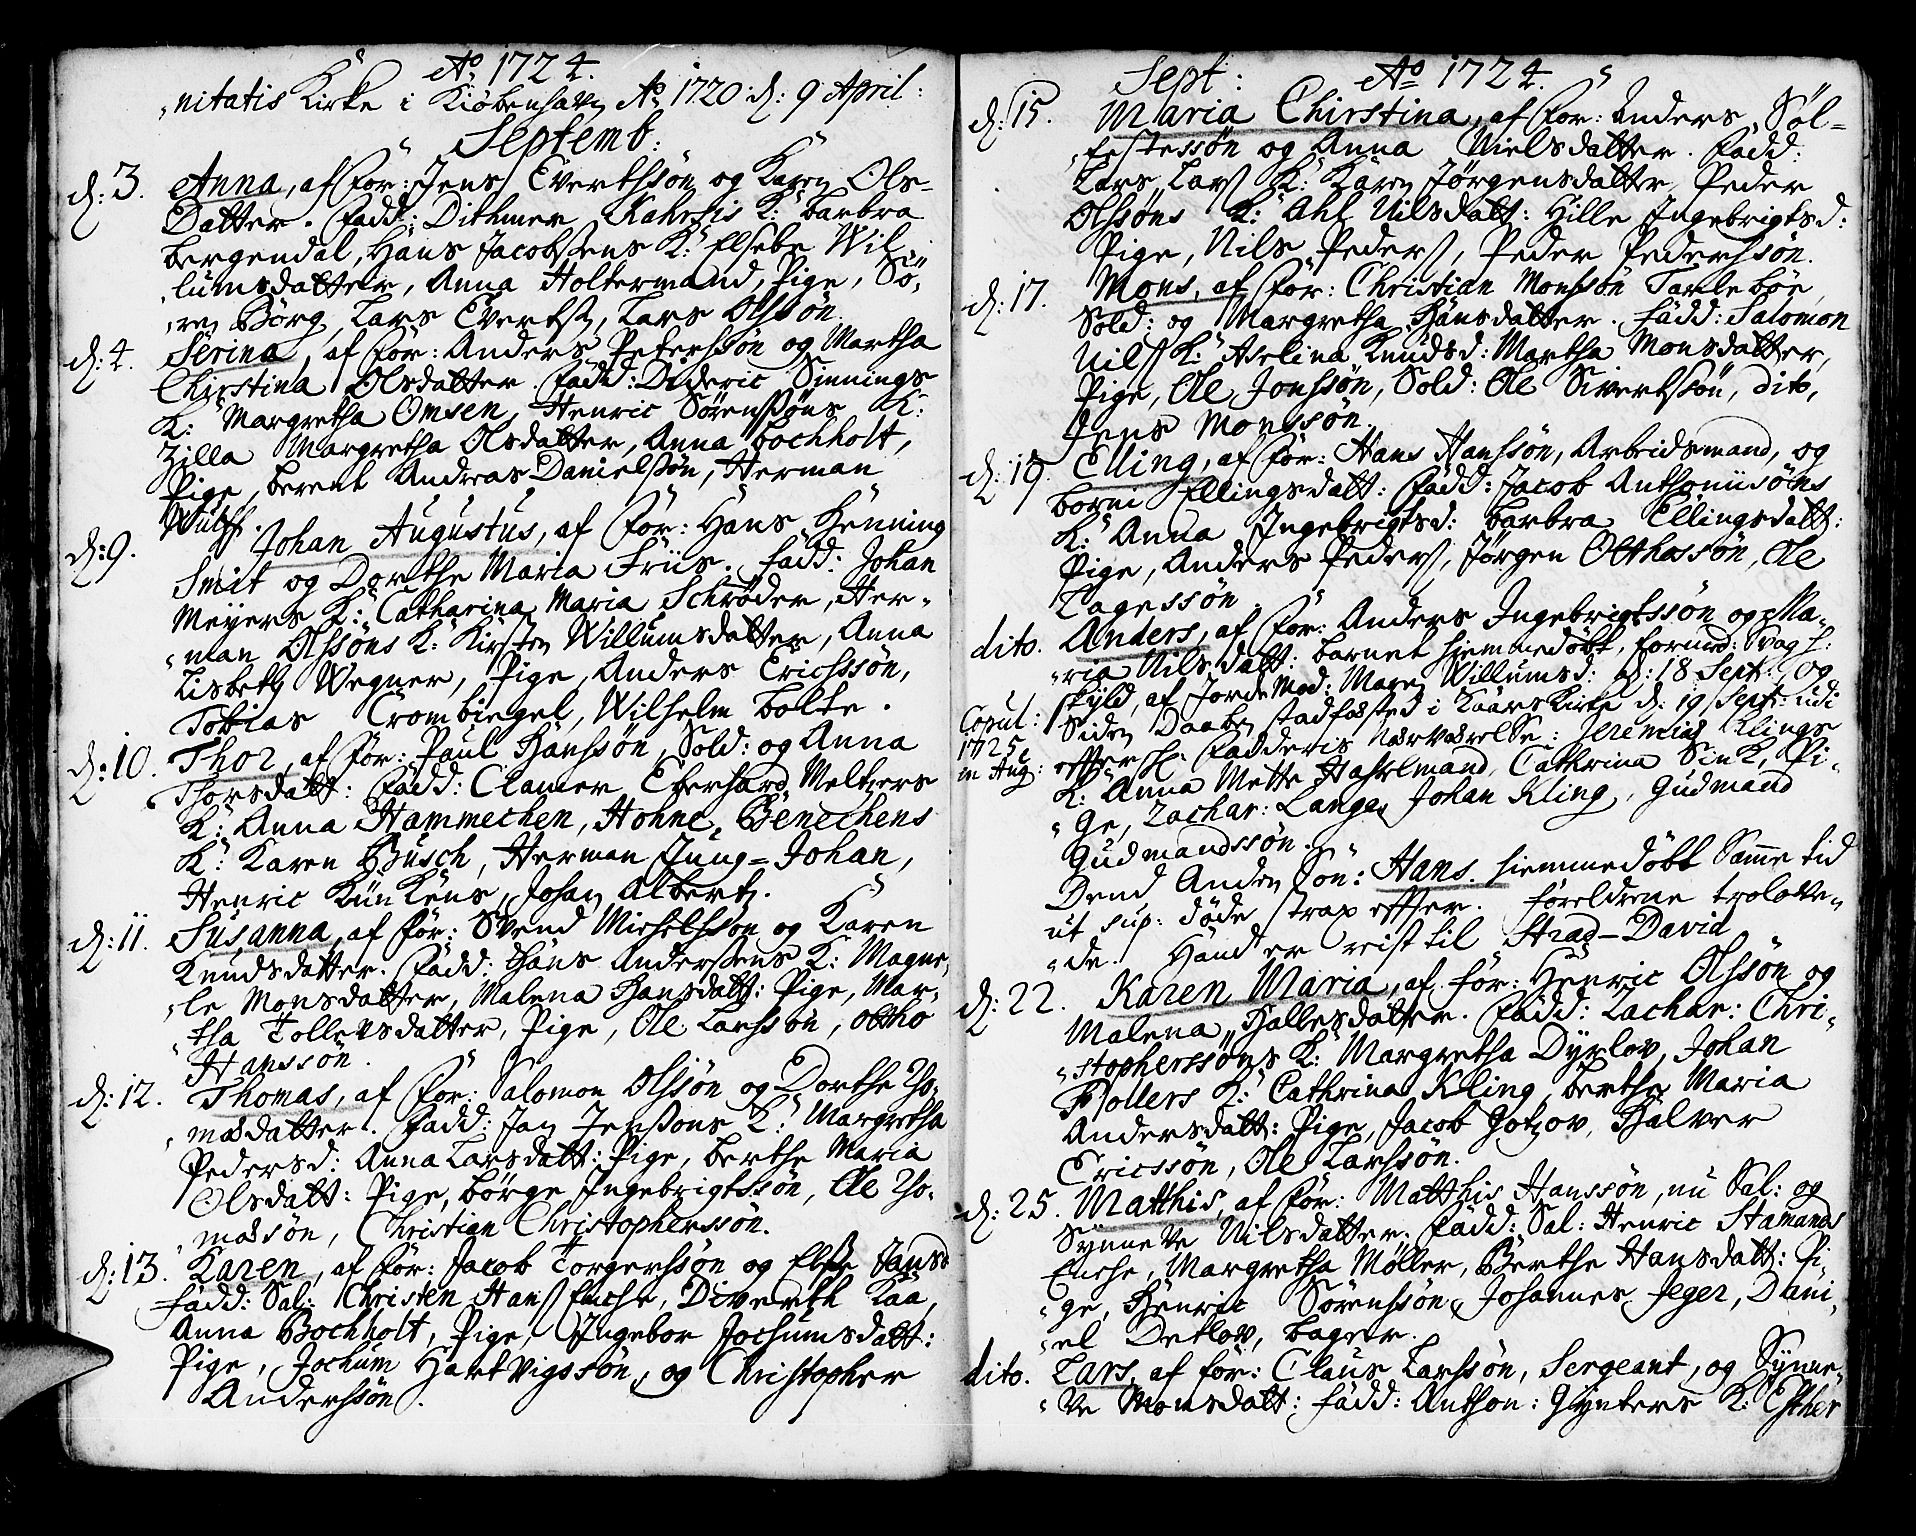 Aō 1724.
"nitatis Kirke i Kiøbenhafn Aō 1720. d: 9 April:
Septemb:
d: 3. Anna, af For: Jens Evertssøn og Karen Ols-
Datter. Fadd: Dithmer Kahrsis K: Barbra
Bergendal, Hans Jacobsens K: Elsebe Wil-
"lumsdatter, Anna Holtermand, Pige, Sö-
"ren Börg, Lars Evertss, Lars Olssøn.
d: 4. Serina, af För: Anders Peterssøn og Martha
Chirstina Olsdatter. Fadd: Dideric Sinnings
K: Margretha Omsen, Henric Sörenssøns K:
Zilla Margretha Olsdatter, Anna Bochholt,
Pige, Berent Andreas Danielssøn, Herman
Wulff.
d: 9. Johan Augustus, af För: Hans Henning
Smit og Dorthe Maria Friis. Fadd: Johan
Meyers K: Catharina Maria Schrøder, Her-
"man Olssøns K: Kirsten Willumsdatter, Anna
Lisbeth Wegner, Pige, Anders Ericssøn,
Tobias Crombiegel, Wilhelm Bolte.
d: 10. Thor, af För: Paul Hanssøn, Sold: og Anna
Thorsdatt: Fadd: Clamer Eberhard Meltzers
K: Anna Hammechen, Hohne Benechens
K: Karen Busch, Herman Jung-Johan,
Henric Kün Kens, Johan Albert.
d: 11. Susanna, af För: Svend Michelssøn og Karen
Knudsdatter. Fadd: Hans Anderssens K: Magne-
"le Monsdatter, Malena Hansdatt: Pige, Mar-
"tha Tollevsdatter, Pige, Ole Larssøn, Ottho
Hanssøn.
d: 12. Thomas, af För: Salomon Olssøn og Dorthe Tho-
"masdatter. Fadd: Jan Jenssøns K: Margretha
Pedersd: Anna Larsdatt: Pige, Berthe Maria
Olsdatt: Pige, Börge Ingebrigtssøn, Ole Tho-
"massøn, Christian Christopherssøn.
d: 13. Karen, af För: Jacob Torgerssøn og Else Jansd
Fadd: Sal: Christen Hans Enche, Diverth Kaa,
Anna Bochholt, Pige, Ingebor Jochumsdatt:
Pige, Jochum Hartvigssøn, og Christopher
Anderssøn.
Sept: Aō 1724.
d: 15. Maria Chirstina, af För: Anders Söl-
"festessøn og Anna Nielsdatter. Fadd:
Lars Lars K: Karen Jørgensdatter, Peder
Olssøns K: Ahl Nilsdatt: Hille Ingebrigtsd:
Pige, Nils Peders, Peder Pederssøn.
d: 17. Mons, af För: Christian Monssøn Tarlebøe,
Sold: og Margretha Hansdatter. Fadd: Salomon
Nils K: Aselina Knudsd: Martha Monsdatter,
Pige, Ole Jonssøn, Sold: Ole Sivertssøn, dito,
Jens Monssøn.
d: 19. Elling, af För: Hans Hanssøn, Arbeidsmand, og
Borni Ellingsdatt: Fadd: Jacob Anthoniisøns
K: Anna Ingebrigtsd: Barbra Ellingsdatt:
Pige, Anders Peders, Jørgen Olthassøn, Ole
Tagessøn.
dito. Anders, af För: Anders Ingebrigtssøn og Ma-
"ria Nilsdatt: barnet hiemmedöbt, formed: Svagh:
skyld, af JordeMod: Maren Willumsd: d: 18 Sept: og
Siden Daaben stadfæsted i Kaars Kirke d: 19 Sept: udi
efftersk: Fadderis Nærværelse: Jeremias Klings
K: Anna Mette Hasselmand, Cathrina Sink, Pi-
"ge, Zachar: Lange, Johan Kling, Gudmand
Gudmandssøn.
Copul:
1725
in Aug:
Dend Anden Sön: Hans. hiemmedöbt Samme tid
ut sup: döde strax effter. Foreldrene trolove-
"de. Hand er reist til Strad-David
d: 22. Karen Maria, af För: Henric Olssøn og
Malena Hallesdatter. Fadd: Zachar: Chri-
"stopherssøns K: Margretha Dyrlov, Johan
Mollers K: Cathrina Kling, Berthe Maria
Andersdatt: Pige, Jacob Gotzov, Halver
Ericssøn, Ole Larssøn.
d: 25. Matthis, af För: Matthis Hanssøn, nu Sal: og
Synneve Nilsdatter. Fadd: Sal: Henric Stamands
Enche, Margretha Møller, Berthe Hansdatt: Pi-
"ge, Henric Sörenssøn, Johannes Jeger, Dani-
"el Detlov, Bager.
dito. Lars, af för: Claus Larssøn, Sergeant, og Synne-
"ve Monsdatt: Fadd: Anthon: Gynters K: Esther